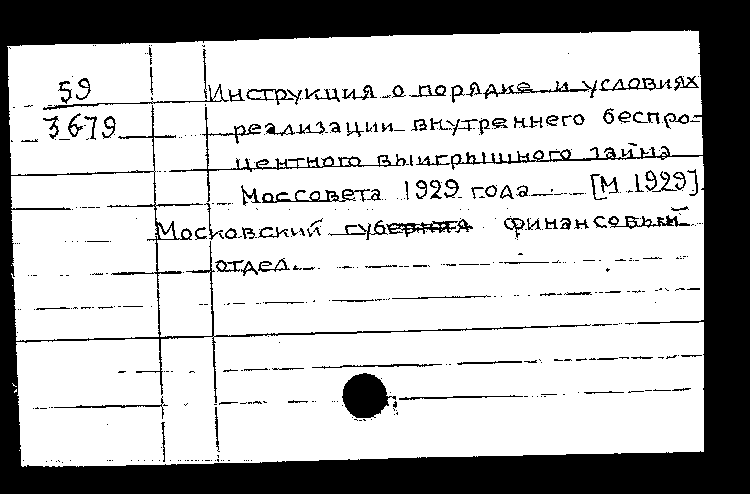 59
3679
Инструкция о порядке и условиях
реализации внутреннего беспро-
центного выигрышного займа
Моссовета 1929 года. [М 1929].
Московский финансовый
отдел.